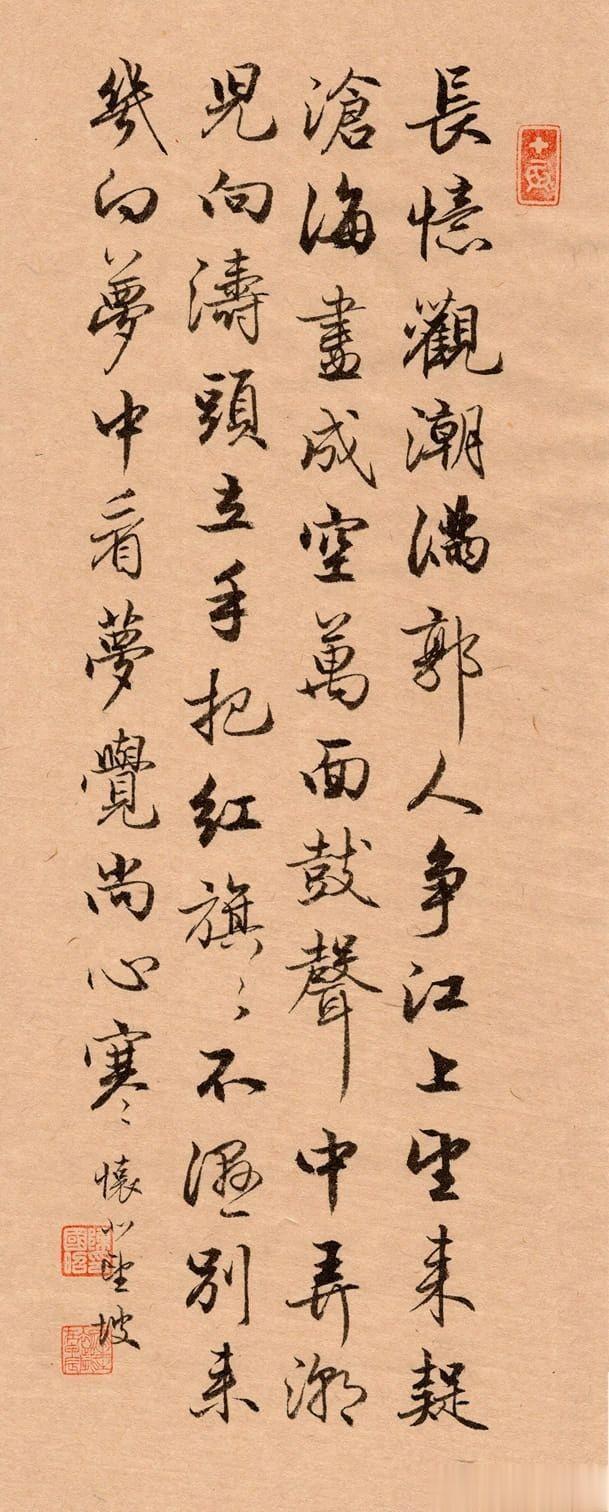 長憶觀潮滿郭人争江上望来疑
滄海盡成空萬面鼓聲中弄潮
児向濤頭立手把紅旗〻不濕別来
幾向夢中看夢覺尚心寒
懷 坡